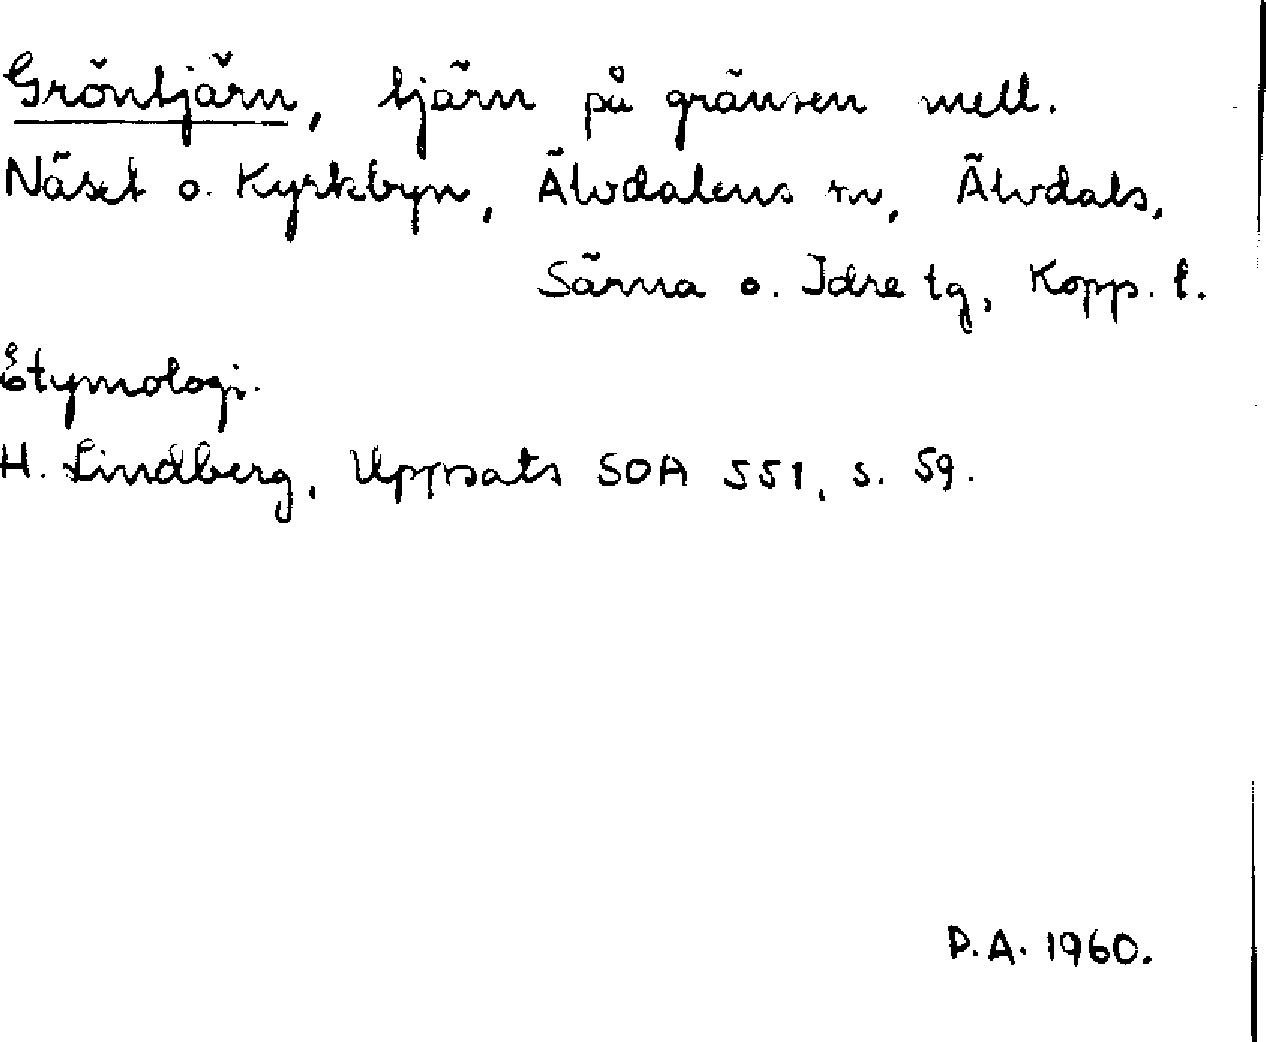 Gröntjärn, tjärn på gränsen mell.
Näset o. Kyrkbyn, Älvdalens sn, Älvdals,
Särna o. Idre tg, Kopp. l.
Etymologi.
H. Lindberg, Uppsats SOA 551, s. 59.
D.A. 1960.